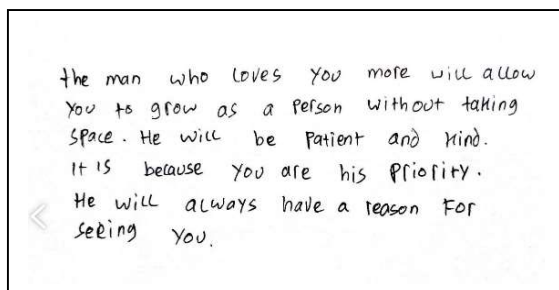 the man who loves you more will allow
you to grow as a person without taking
space. He will be patient and kind.
It is because you are his priority.
He will always have a reason for
seeing you.